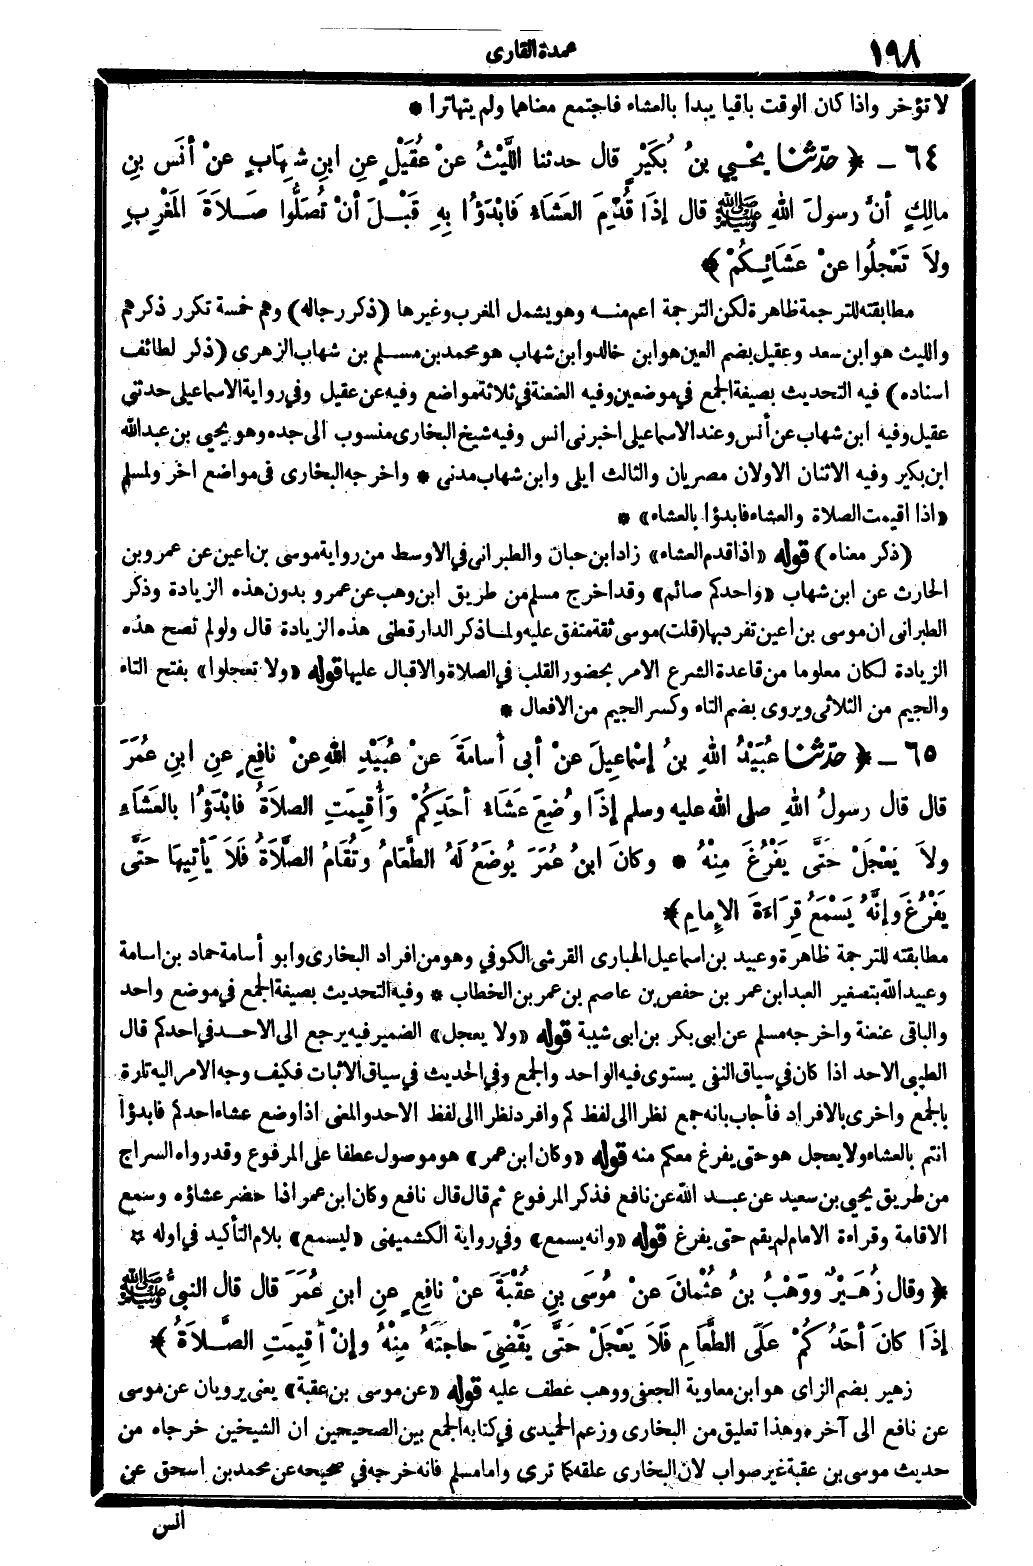 ١٩٨
عمدة القارى
لا تؤخر واذا كان الوقت باقيا يبدا بالعشاء فاجتمع معناهما ولم يتهاترا *
٦٤ ــ ﴿ حَدَّثَنَا يَحْيَي بنُ بُكَيْرٍ قال حدثنا اللَّيْثُ عنْ عُقَيْلٍ عنِ ابنِ شِهَابٍ عنْ أنَسِ بنِ
مالِكٍ أنَّ رسولَ اللهِ ﷺ قال إذَا قُدِّمَ العَشَاءُ فَابْدَؤُا بِهِ قَبْلَ أنْ تُصَلُّوا صَلاَةَ المَغْرِبِ
ولاَ تَعْجَلُوا عنْ عَشَائِكُمْ ﴾
مطابقته للترجمة ظاهرة لكن الترجمة اعم منه وهو يشمل المغرب وغيرها (ذكر رجاله) وهم خمسة تكرر ذكرهم
والليث هو ابن سعد وعقيل بضم العين هو ابن خالد وابن شهاب هو محمد بن مسلم بن شهاب الزهرى (ذكر لطائف
اسناده) فيه التحديث بصيغة الجمع في موضعين وفيه العنعنة في ثلاثة مواضع وفيه عن عقيل وفي رواية الاسماعيلى حدثنى
عقيل وفيه ابن شهاب عن أنس وعند الاسماعيلى اخبرنى انس وفيه شيخ البخارى منسوب الى جده وهو يحيى بن عبدالله
ابن بكير وفيه الاثنان الاولان مصريان والثالث ايلى وابن شهاب مدنى * واخرجه البخارى في مواضع اخر ولمسلم
«اذا اقيمت الصلاة والعشاء فابدؤا بالعشاء» *
(ذكر معناه) قوله «اذا قدم العشاء» زاد ابن حبان والطبرانى في الاوسط من رواية موسى بن اعين عن عمرو بن
الحارث عن ابن شهاب «واحدكم صائم» وقد اخرج مسلم من طريق ابن وهب عن عمرو بدون هذه الزيادة وذكر
الطبرانى ان موسى بن اعين تفرد بها (قلت) موسى ثقة متفق عليه ولما ذكر الدارقطنى هذه الزيادة قال ولو لم تصح هذه
الزيادة لكان معلوما من قاعدة الشرع الامر بحضور القلب في الصلاة والاقبال عليها قوله «ولا تعجلوا» بفتح التاء
والجيم من الثلاثى ويروى بضم التاء وكسر الجيم من الافعال *
٦٥ ــ ﴿ حَدَّثَنَا عُبَيْدُ اللهِ بنُ إسْمَاعِيلَ عنْ أبى أُسَامَةَ عنْ عُبَيْدِ اللهِ عنْ نافِعٍ عنِ ابنِ عُمَرَ
قال قال رسولُ اللهِ صلى الله عليه وسلم إذَا وُضِعَ عَشَاءُ أحَدِكُمْ وَأُقِيمَتِ الصلاَةُ فابْدَؤُا بالعَشَاءِ
ولاَ يَعْجَلْ حَتَّى يَفْرُغَ مِنْهُ * وكانَ ابنُ عُمَرَ يُوضَعُ لَهُ الطَّعَامُ وتُقَامُ الصَّلاَةُ فَلاَ يَأْتِيهَا حَتَّى
يَفْرُغَ وإنَّهُ يَسْمَعُ قِرَاءَةَ الإِمامِ ﴾
مطابقته للترجمة ظاهرة وعبيد بن اسماعيل الهبارى القرشى الكوفي وهو من افراد البخارى وابو أسامة حماد بن اسامة
وعبيد الله بتصغير العبد ابن عمر بن حفص بن عاصم بن عمر بن الخطاب * وفيه التحديث بصيغة الجمع في موضع واحد
والباقى عنعنة واخرجه مسلم عن ابى بكر بن ابى شيبة قوله «ولا يعجل» الضمير فيه يرجع الى الاحد في احدكم قال
الطيبى الاحد اذا كان في سياق النفى يستوى فيه الواحد والجمع وفي الحديث في سياق الاثبات فكيف وجه الامر اليه تارة
بالجمع واخرى بالافراد فأجاب بانه جمع نظرا الى لفظ كم وافرد نظرا الى لفظ الاحد والمعنى اذا وضع عشاء احدكم فابدؤا
انتم بالعشاء ولا يعجل هو حتى يفرغ معكم منه قوله «وكان ابن عمر» هو موصول عطفا على المرفوع وقد رواه السراج
من طريق يحيى بن سعيد عن عبد الله عن نافع فذكر المرفوع ثم قال قال نافع وكان ابن عمر اذا حضر عشاؤه وسمع
الاقامة وقراءة الامام لم يقم حتى يفرغ قوله «وانه يسمع» وفي رواية الكشميهنى «ليسمع» بلام التأكيد في اوله *
﴿ وقال زُهَيْرٌ ووَهْبُ بنُ عُثْمانَ عنْ مُوسَى بنِ عُقْبَةَ عنْ نافِعٍ عنِ ابنِ عُمَرَ قال قال النبىُّ ﷺ
إذَا كانَ أحَدُكُمْ عَلَى الطَّعَامِ فَلاَ يَعْجَلْ حَتَّى يَقْضِىَ حاجَتَهُ مِنْهُ وإنْ أُقِيمَتِ الصَّلاَةُ ﴾
زهير بضم الزاى هو ابن معاوية الجعفى ووهب عطف عليه قوله «عن موسى بن عقبة» يعنى يرويان عن موسى
عن نافع الى آخره وهذا تعليق من البخارى وزعم الحميدى في كتابه الجمع بين الصحيحين ان الشيخين خرجاه من
حديث موسى بن عقبة غير صواب لان البخارى علقه كما ترى واما مسلم فانه خرجه في صحيحه عن محمد بن اسحق عن
أنس